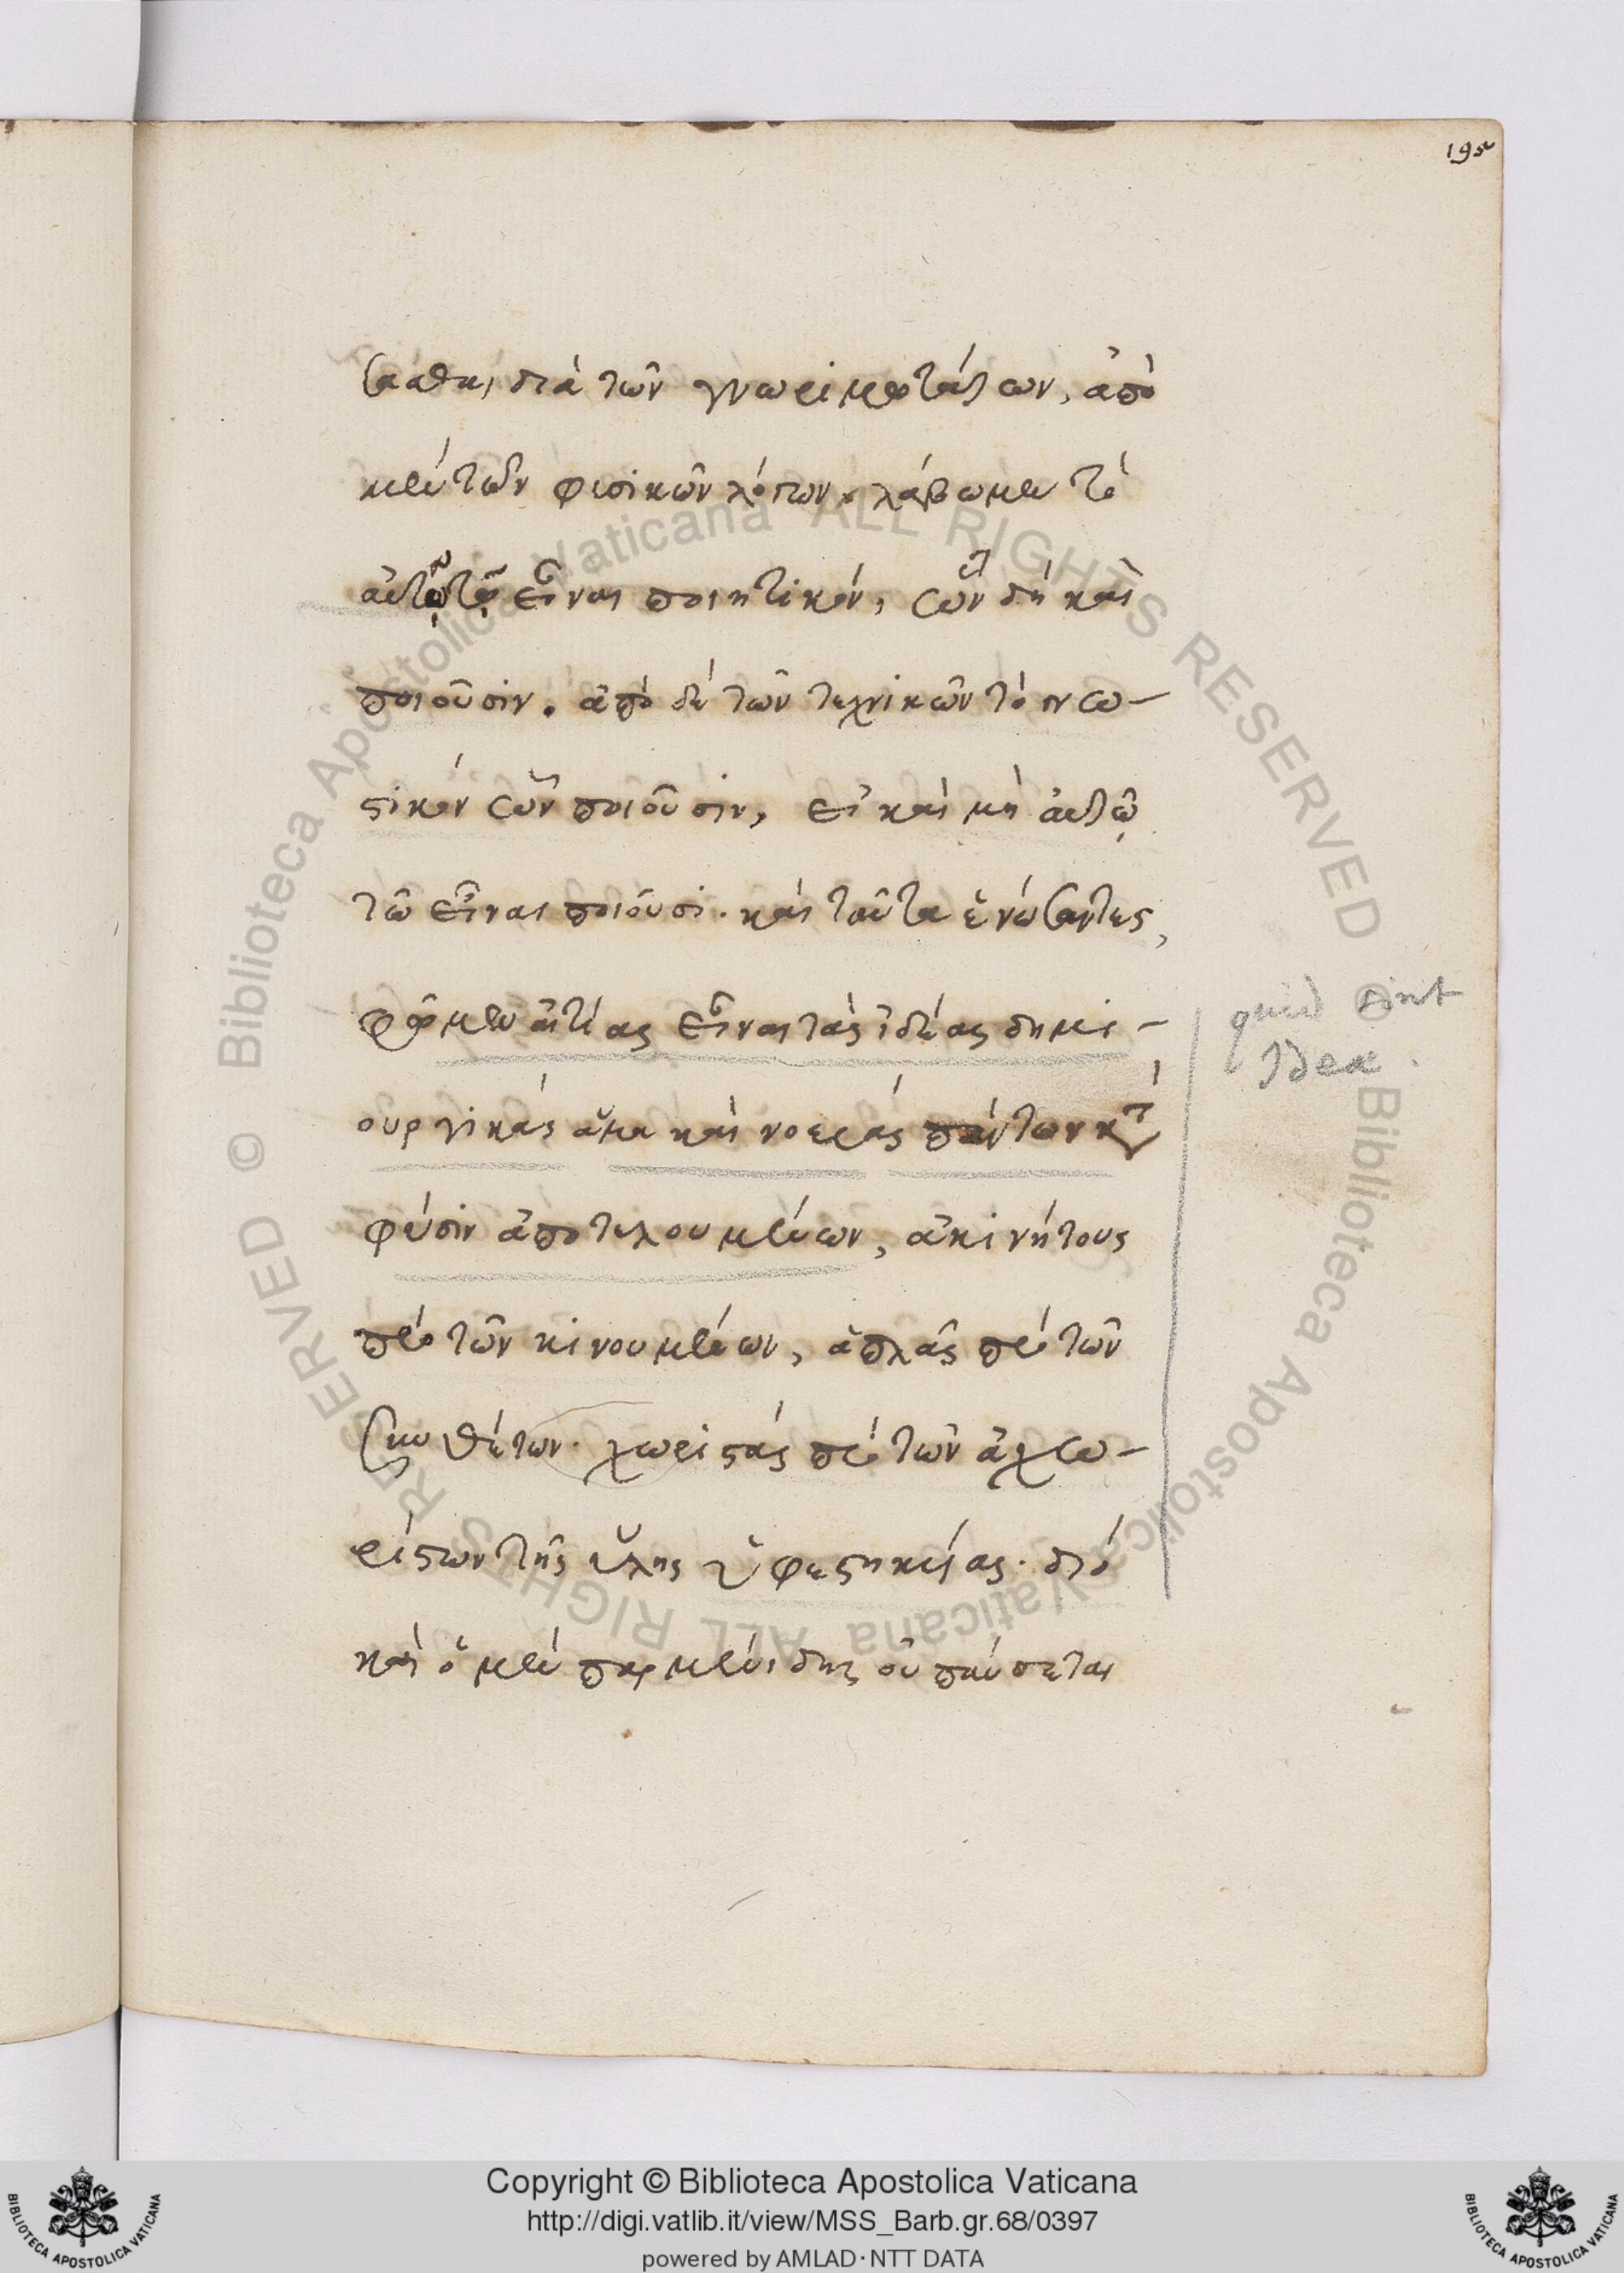 195
σασθαι διὰ τῶν γνωριμοτάτων, ἀπὸ
μὲν τῶν φυσικῶν λόγων λάβωμεν τὸ
αὐτῷ τῷ εἶναι ποιητικόν, ὧν δὴ καὶ
ποιοῦσιν. ἀπὸ δὲ τῶν τεχνικῶν τὸ γνω-
στικὸν ὧν ποιοῦσιν, εἰ καὶ μὴ αὐτῷ
τῷ εἶναι ποιοῦσι. καὶ ταῦτα ἑνώσαντες,
φῶμεν αἰτίας εἶναι τὰς ἰδέας δημι-
ουργικὰς ἅμα καὶ νοερὰς πάντων κατὰ
φύσιν ἀποτελουμένων, ἀκινήτους
πρὸ τῶν κινουμένων, ἁπλᾶς πρὸ τῶν
συνθέτων. χωριστὰς πρὸ τῶν ἀχω-
ρίστων τῆς ὕλης ὑφεστηκυίας. διὸ
καὶ ὁ μὲν παρμενίδης οὐ παύσεται
quid sint
Ideæ.
Copyright © Biblioteca Apostolica Vaticana
http://digi.vatlib.it/view/MSS_Barb.gr.68/0397
powered by AMLAD·NTT DATA
BIBLIOTECA APOSTOLICA VATICANA
BIBLIOTECA APOSTOLICA VATICANA
© Biblioteca Apostolica Vaticana ALL RIGHTS RESERVED
© Biblioteca Apostolica Vaticana ALL RIGHTS RESERVED